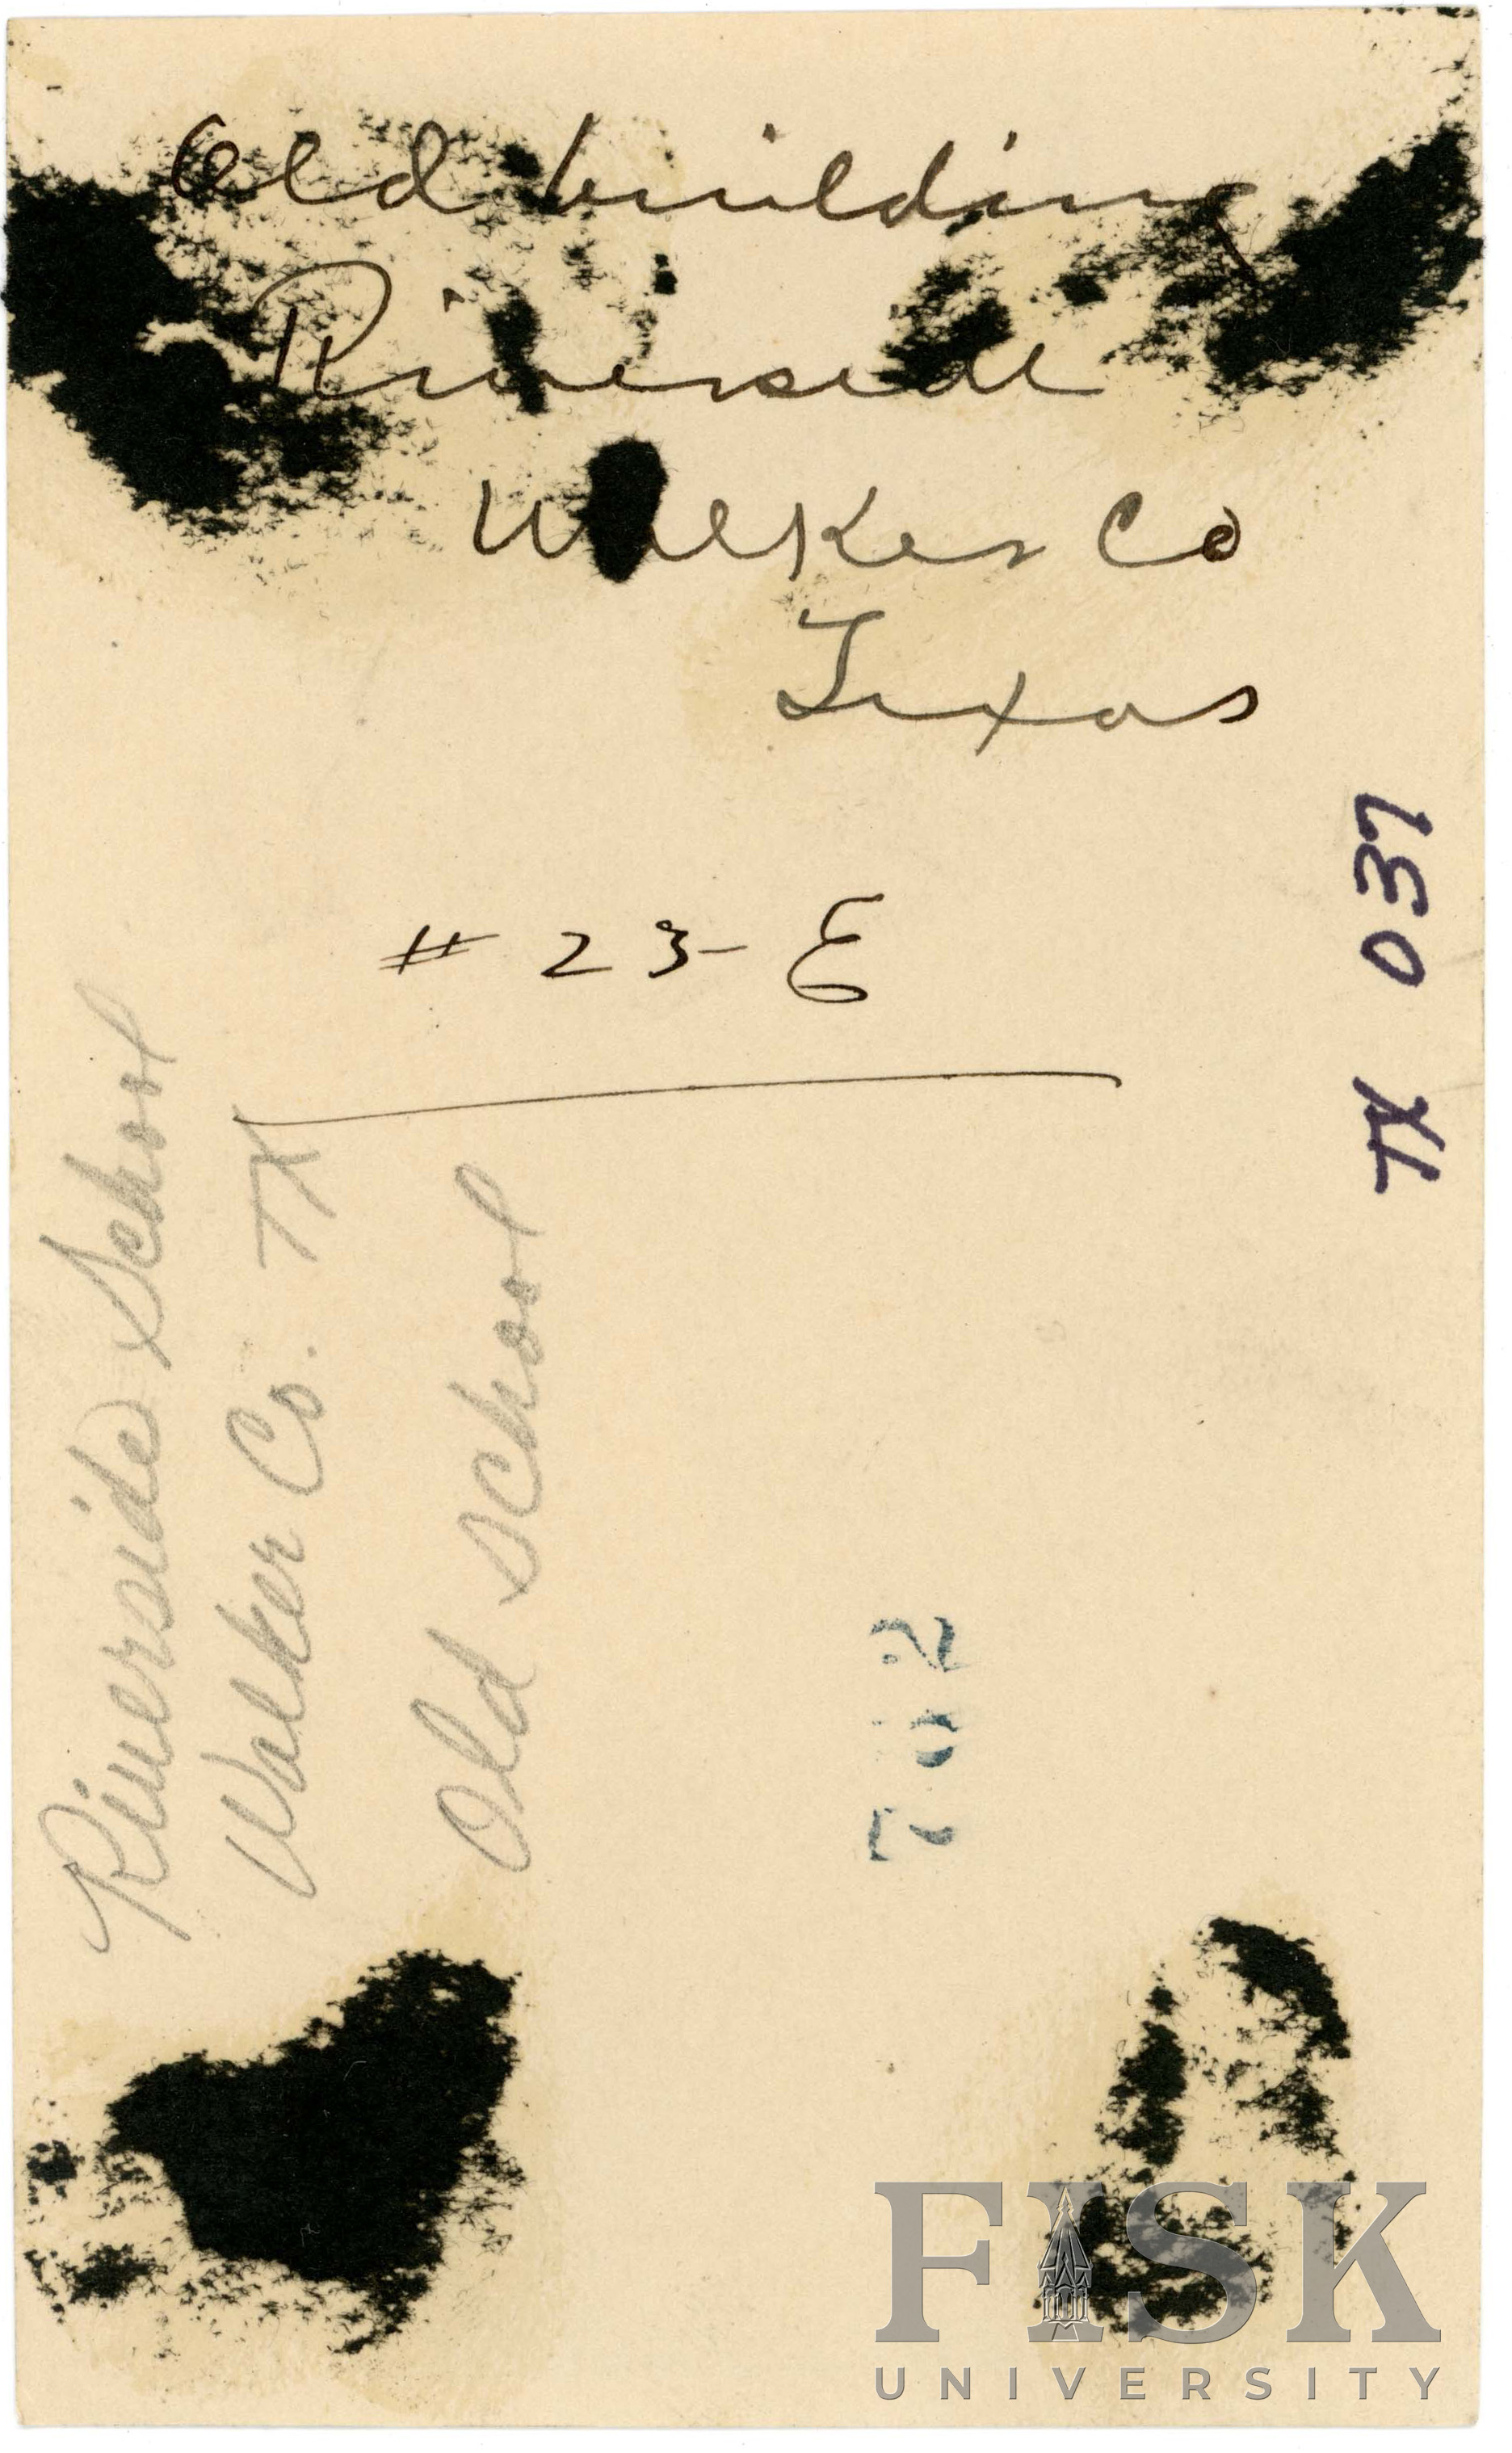 Old building
Riverside
Walker Co
Texas
# 23-E
TX 037
Riverside School
Walker Co. TX
Old School
FISK
UNIVERSITY